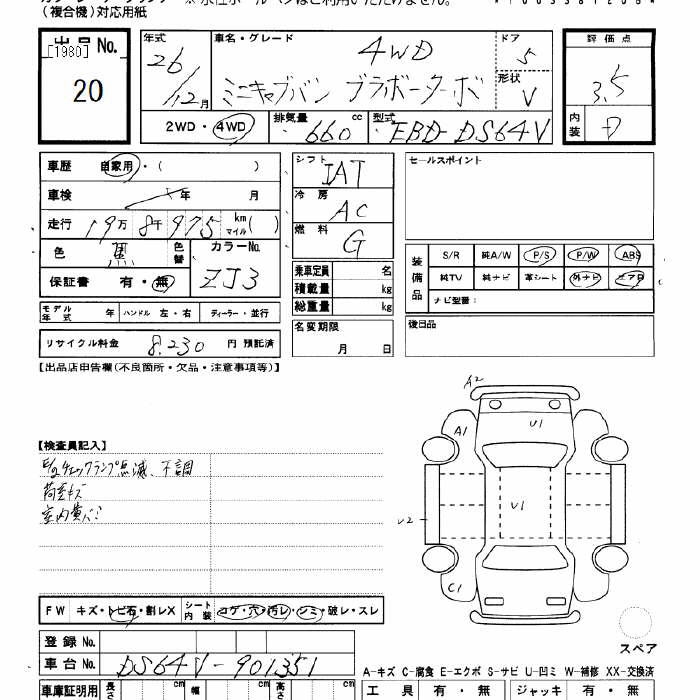 (複合機)対応用紙
出品No.
[1980]
20
年式
26/12月
車名・グレード
4WD
ミニキャブバン ブラボーターボ
ドア
5
形状
V
評価点
3.5
内装
D
2WD・4WD
排気量 660 cc
型式 EBD-DS64V
車歴 自家用・( )
車検 年 月
走行 19万8千975 km マイル( )
色 黒 色替
カラーNo. ZJ3
保証書 有・無
モデル年式 年 ハンドル 左・右 ディーラー・並行
リサイクル料金 8,230 円 預託済
シフト IAT
冷房 AC
燃料 G
乗車定員 名
積載量 kg
総重量 kg
名変期限
月 日
セールスポイント
装備品
S/R 純A/W P/S P/W ABS
純TV 純ナビ 革シート 外ナビ エアB
ナビ型番:
後日品
【出品店申告欄(不良箇所・欠品・注意事項等)】
【検査員記入】
E/gチェックランプ点滅、不調
荷室キズ
A2
A1
U1
U1
U2
C1
スペア
FW キズ・トビ石・割レX
シート内装 コゲ・穴・汚レ・シミ・破レ・スレ
登録No.
車台No. DS64V-901351
A-キズ C-腐食 E-エクボ S-サビ U-凹ミ W-補修 XX-交換済
車庫証明用 長さ cm 幅 cm 高さ cm
工具 有・無 ジャッキ 有・無